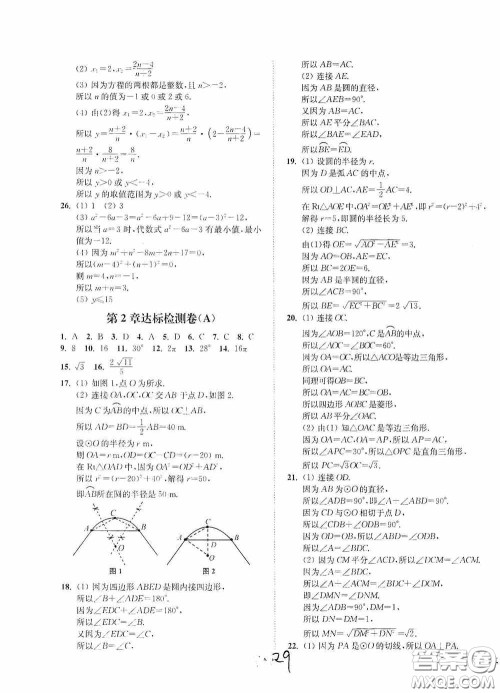 (2) x₁=2, x₂=(2n-4)/(n+2)
(3) 因为方程的两根都是整数, 且 n>-2,
所以 n 的值为-1 或 0 或 2 或 6.
(4) 由(2)得 x₁=2, x₂=(2n-4)/(n+2)
所以 y=(n+2)/n·(x₁-x₂)=(n+2)/n·(2-(2n-4)/(n+2))=
(n+2)/n·8/(n+2)=8/n.
因为 n>-2,
所以 y>0 或 y<-4.
所以 y 的取值范围为 y>0 或 y<-4.
26. (1) 1 (2) 3
(3) a²-6a-3=a²-6a+9-12=(a-3)²-12,
所以当 a=3 时, 代数式 a²-6a-3 有最小值, 最小
值为-12.
(4) 因为 m²+n²-8m-2n+17=0,
所以(m-4)²+(n-1)²=0,
则 m=4, n=1,
所以 m+n=5.
(5) y≤15
第 2 章达标检测卷(A)
9. 8 10. 16 11. 30° 12. 2π 13. 28° 14. 16π
15. √3 16. 2√11/5
17. (1) 如图 1, 点 O 为所求.
(2) 连接 OA, OC, OC 交 AB 于点 D, 如图 2.
因为 C 为AB的中点, 所以 OC⊥AB,
所以 AD=BD=1/2AB=40 m.
设⊙O 的半径为 r m,
则 OA=r m, OD=OC-CD=(r-20) m.
在 Rt△OAD 中, 因为 OA²=OD²+AD²,
所以 r²=(r-20)²+40², 解得 r=50,
即AB所在圆的半径是 50 m.
C
A
B
O
图 1
C
A
D
B
O
图 2
18. (1) 因为四边形 ABED 是圆内接四边形,
所以∠B+∠ADE=180°.
因为∠EDC+∠ADE=180°,
所以∠B=∠EDC.
又因为∠EDC=∠C,
所以∠B=∠C,
所以 AB=AC.
(2) 连接 AE.
因为 AB 是圆的直径,
所以∠AEB=90°.
又因为 AB=AC,
所以 AE 平分∠BAC,
所以∠BAE=∠EAD,
所以BE=ED.
19. (1) 设圆的半径为 r.
因为 D 是弧 AC 的中点,
所以 OD⊥AC, AE=1/2AC=4.
在 Rt△AOE 中, OA²=OE²+AE², 即 r²=(r-2)²+4²,
解得 r=5, 即圆的半径长为 5.
(2) 连接 BC.
由(1)得 OE=√(AO²-AE²)=3.
因为 AO=OB, AE=EC,
所以 BC=2OE=6.
因为 AB 是直径,
所以∠ECB=90°,
所以 BE=√(EC²+BC²)=2√13.
20. (1) 连接 OC.
因为∠AOB=120°, C 是AB的中点,
所以∠AOC=∠BOC=60°.
因为 OA=OC, 所以△ACO是等边三角形,
所以 OA=AC.
同理可得 OB=BC,
所以 OA=AC=BC=OB,
所以四边形 AOBC 是菱形,
所以 AB 平分∠OAC.
(2) 由(1) 知△OAC 是等边三角形.
因为 OA=AC, OA=AP, 所以 AP=AC,
所以∠APC=30°, 所以△OPC 是直角三角形,
所以 PC=√3OC=√3.
21. (1) 连接 OD.
因为 AB 为⊙O 的直径,
所以∠ADB=90°, 即∠A+∠ABD=90°.
因为 CD 与⊙O 相切于点 D,
所以∠CDB+∠ODB=90°.
因为∠ODB=∠ABD,
所以∠A=∠BDC.
(2) 因为 CM 平分∠ACD, 所以∠DCM=∠ACM.
因为∠A=∠BDC,
所以∠A+∠ACM=∠BDC+∠DCM,
即∠DMN=∠DNM.
因为∠ADB=90°, DM=1,
所以 DN=DM=1,
所以 MN=√(DM²+DN²)=√2.
22. (1) 因为 PA 是⊙O 的切线, 所以 OA⊥PA.
29